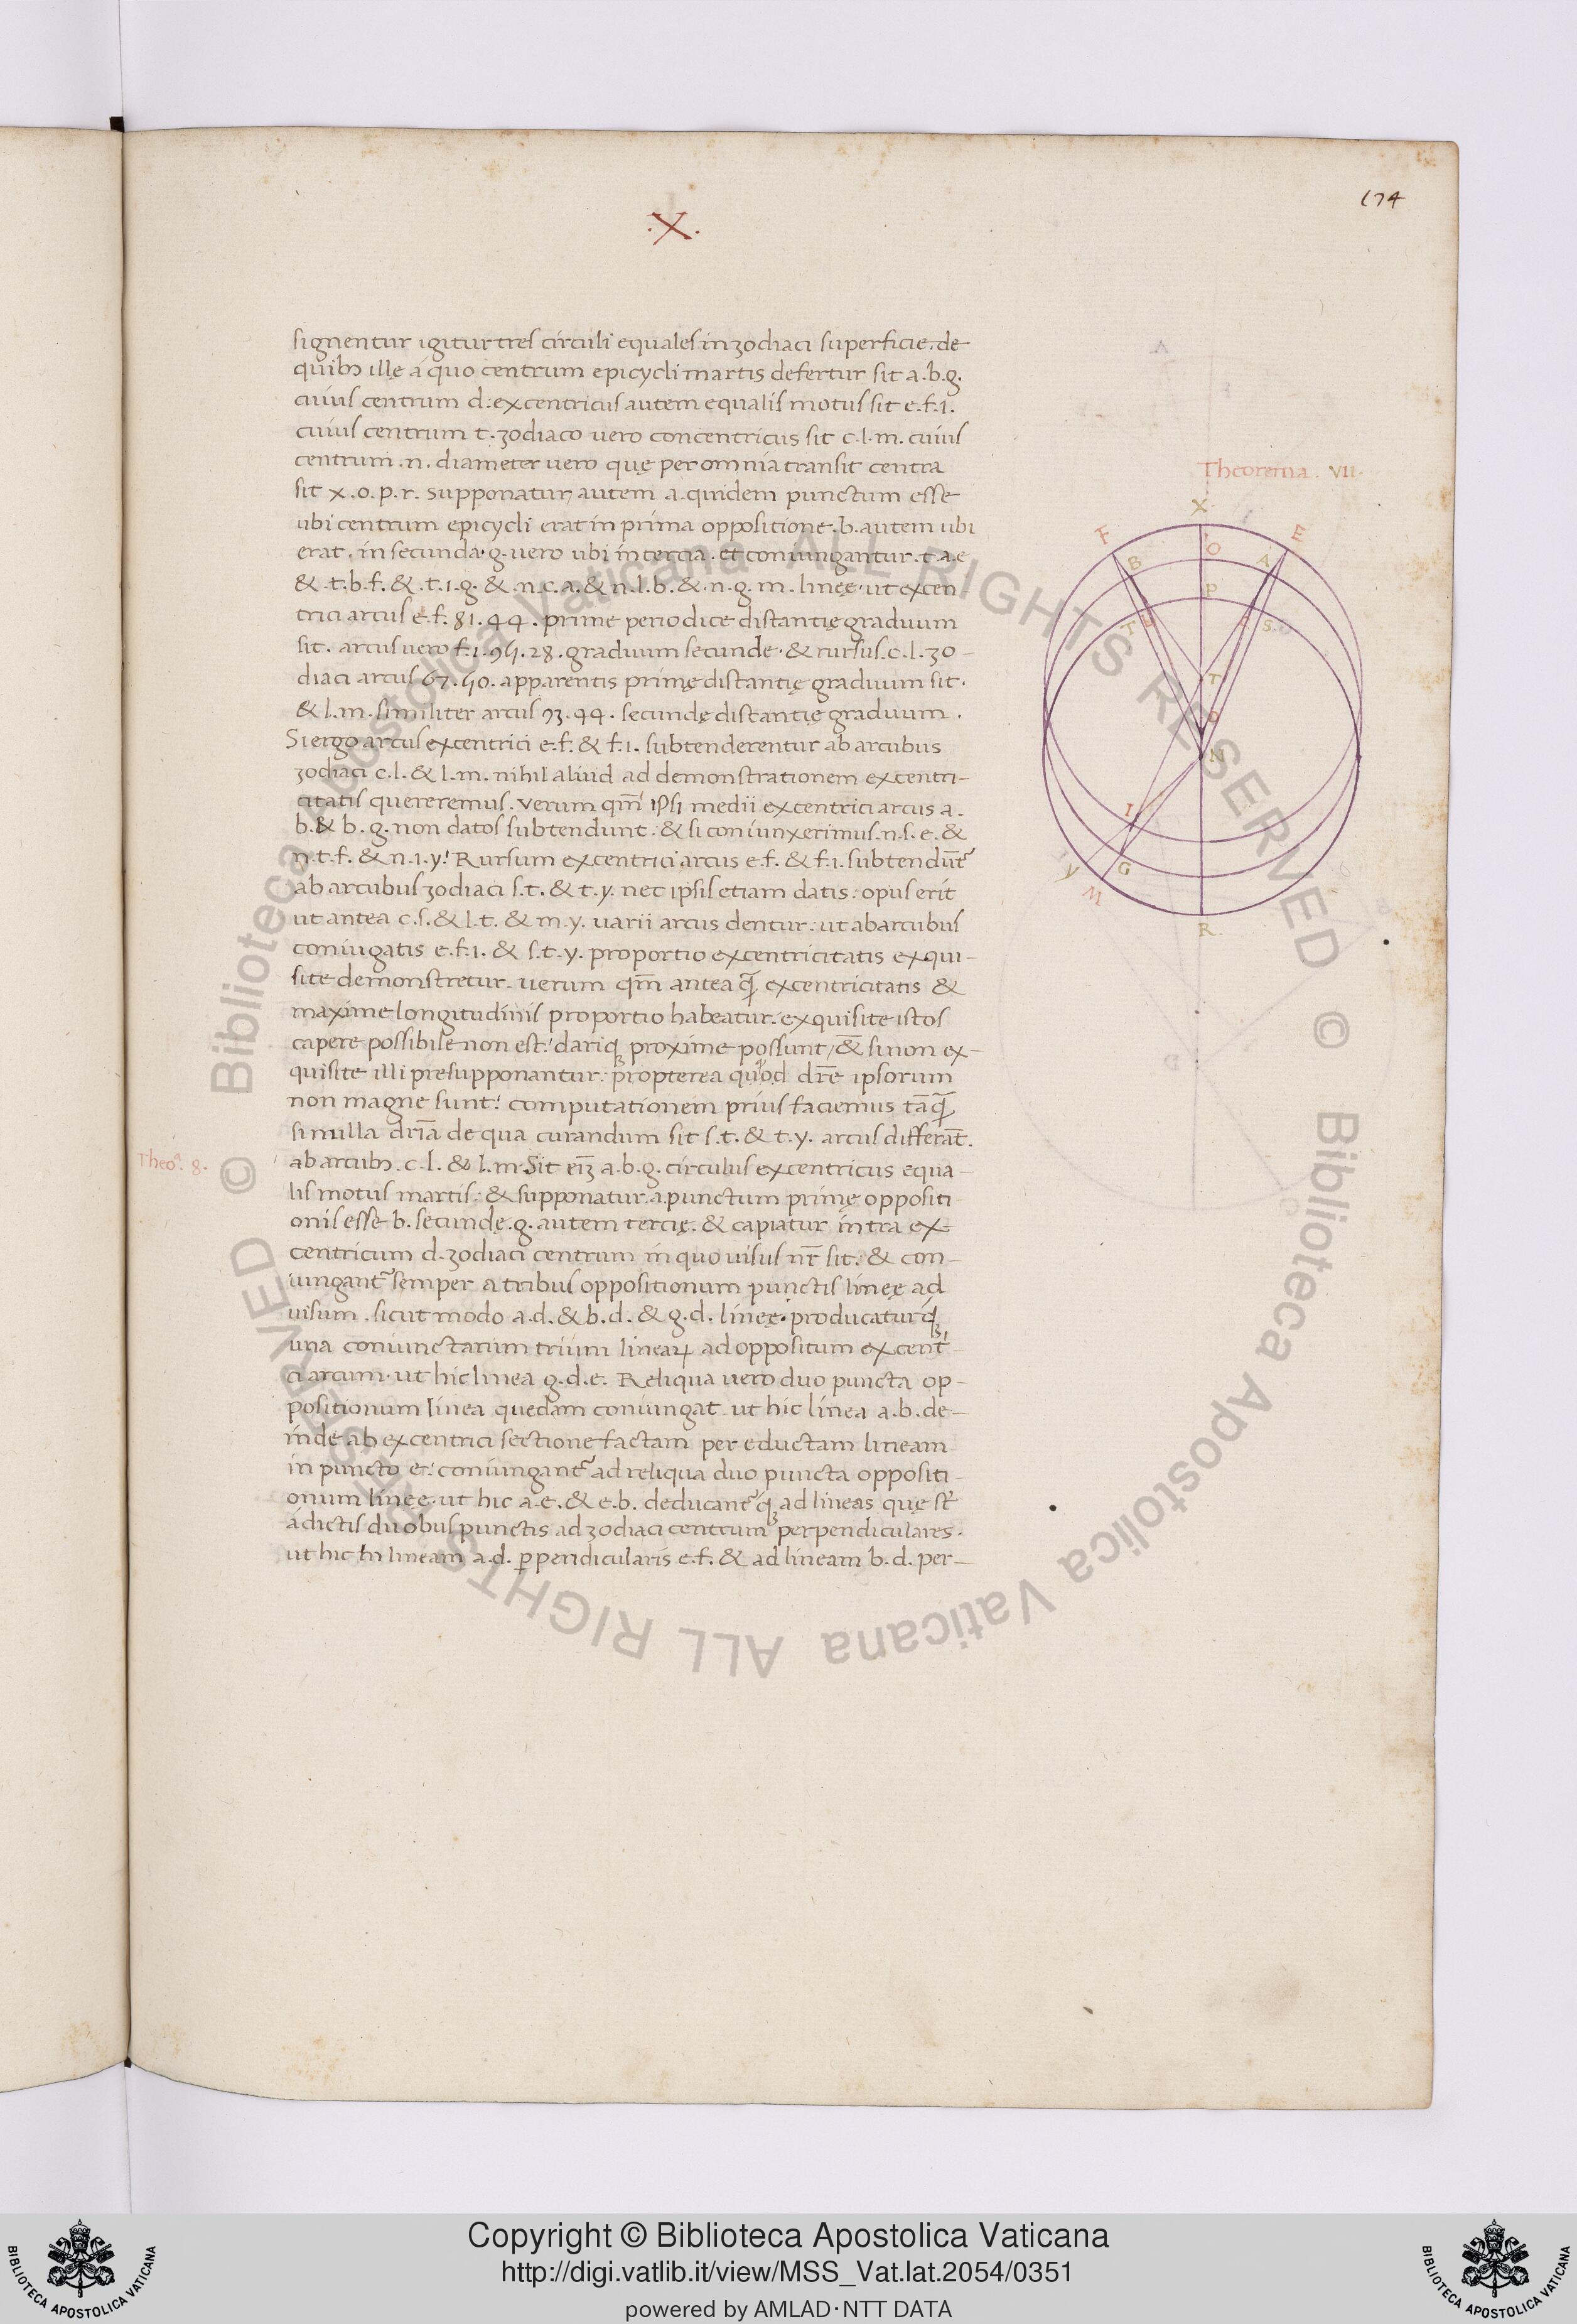 174
.X.
signentur igitur tres circuli equales in zodiaci superficie. de
quibꝫ illę á quo centrum epicycli martis defertur sit a.b.g.
cuius centrum d: excentricus autem equalis motus sit e.f.i.
cuius centrum t. zodiaco uero concentricus sit c.l.m. cuius
centrum .n. diameter uero quę per omnia transit centra
sit x.o.p.r. supponatur autem a. quidem punctum esse
ubi centrum epicycli erat in prima oppositione. b. autem ubi
erat. in secunda. g. uero ubi in tercia. et coniungantur. t.a.e
& .t.b.f. & .t.i.g. & .n.c.a. & n.l.b. & .n.g.m. lineę. ut excen
trici arcus e.f. 81.44. prime periodice distantię graduum
sit. arcus uero f.i. 95.28. graduum secunde. & rursus. c.l. zo-
diaci arcus 67.50. apparentis primę distantię graduum sit.
& l.m. similiter arcus 93.44. secundę distantię graduum.
Si ergo arcus excentrici e.f. & f.i. subtenderentur ab arcubus
zodiaci c.l. & l.m. nihil aliud ad demonstrationem excentri-
citatis quereremus. verum qm̄ ipsi medii excentrici arcus a.
b. & b.g. non datos subtendunt: & si coniunxerimus. n.s.e. &
n.t.f. & n.i.y. Rursum excentrici arcus e.f. & f.i. subtendūt᷑
ab arcubus zodiaci s.t. & t.y. nec ipsis etiam datis: opus erit
ut antea c.s. & l.t. & m.y. uarii arcus dentur: ut ab arcubus
coniugatis e.f.i. & s.t.y. proportio excentricitatis exqui-
site demonstretur. uerum qm̄ antea ꝙ̄ excentricitatis &
maxime longitudinis proportio habeatur. exquisite istos
capere possibile non est: dariqꝫ proxime possunt, &̄ si non ex-
quisite illi presupponantur: propterea quod dr̄e ipsorum
non magne sunt: computationem prius faciemus tāꝙ̄
si nulla dr̄ia de qua curandum sit s.t. & t.y. arcus differāt.
Theoᵃ. 8.
ab arcubꝫ. c.l. & l.m. Sit eīꝫ a.b.g. circulus excentricus equa-
lis motus martis: & supponatur. a. punctum primę oppositi
onis esse b. secundę. g. autem tercię. & capiatur intra ex-
centricum d. zodiaci centrum in quo uisus nr̄ sit: & con-
iungant᷑ semper a tribus oppositionum punctis lineę ad
uisum. sicut modo a.d. & b.d. & g.d. lineę. producaturqꝫ
una coniunctarum trium linearꝝ ad oppositum excent-
ci arcum. ut hic linea g.d.e. Reliqua uero duo puncta op-
positionum linea quedam coniungat. ut hic linea a.b. de-
inde ab excentrici sectione factam per eductam lineam
in puncto e: coniungant᷑ ad reliqua duo puncta oppositi
onum lineę. ut hic a.e. & e.b. deducant᷑qꝫ ad lineas quę st̄
á dictis duobus punctis ad zodiaci centrum perpendiculares.
ut hic in lineam a.d. ꝑpendicularis e.f. & ad lineam b.d. per-
Theorema. VII.
X
F
E
B
O
A
P
T
S
T
D
N
I
G
Y
M
R
Copyright © Biblioteca Apostolica Vaticana
http://digi.vatlib.it/view/MSS_Vat.lat.2054/0351
powered by AMLAD·NTT DATA
BIBLIOTECA APOSTOLICA VATICANA
BIBLIOTECA APOSTOLICA VATICANA
© Biblioteca Apostolica Vaticana ALL RIGHTS RESERVED © Biblioteca Apostolica Vaticana ALL RIGHTS RESERVED